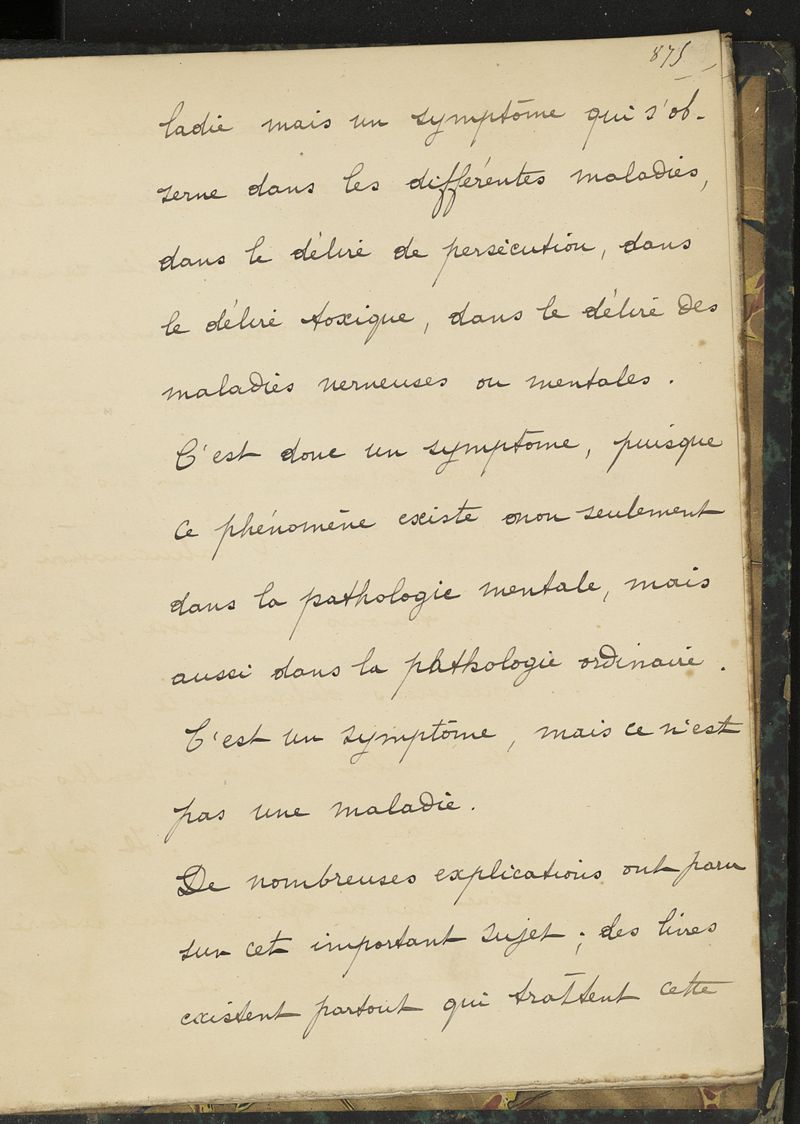 875
ladie mais un symptôme qui s'ob-
serve dans les différentes maladies,
dans le délire de persécution, dans
le délire toxique, dans le délire des
maladies nerveuses ou mentales.
C'est donc un symptôme, puisque
ce phénomène existe non seulement
dans la pathologie mentale, mais
aussi dans la pathologie ordinaire.
C'est un symptôme, mais ce n'est
pas une maladie.
De nombreuses explications ont paru
sur cet important sujet ; des livres
existent partout qui traîtent cette